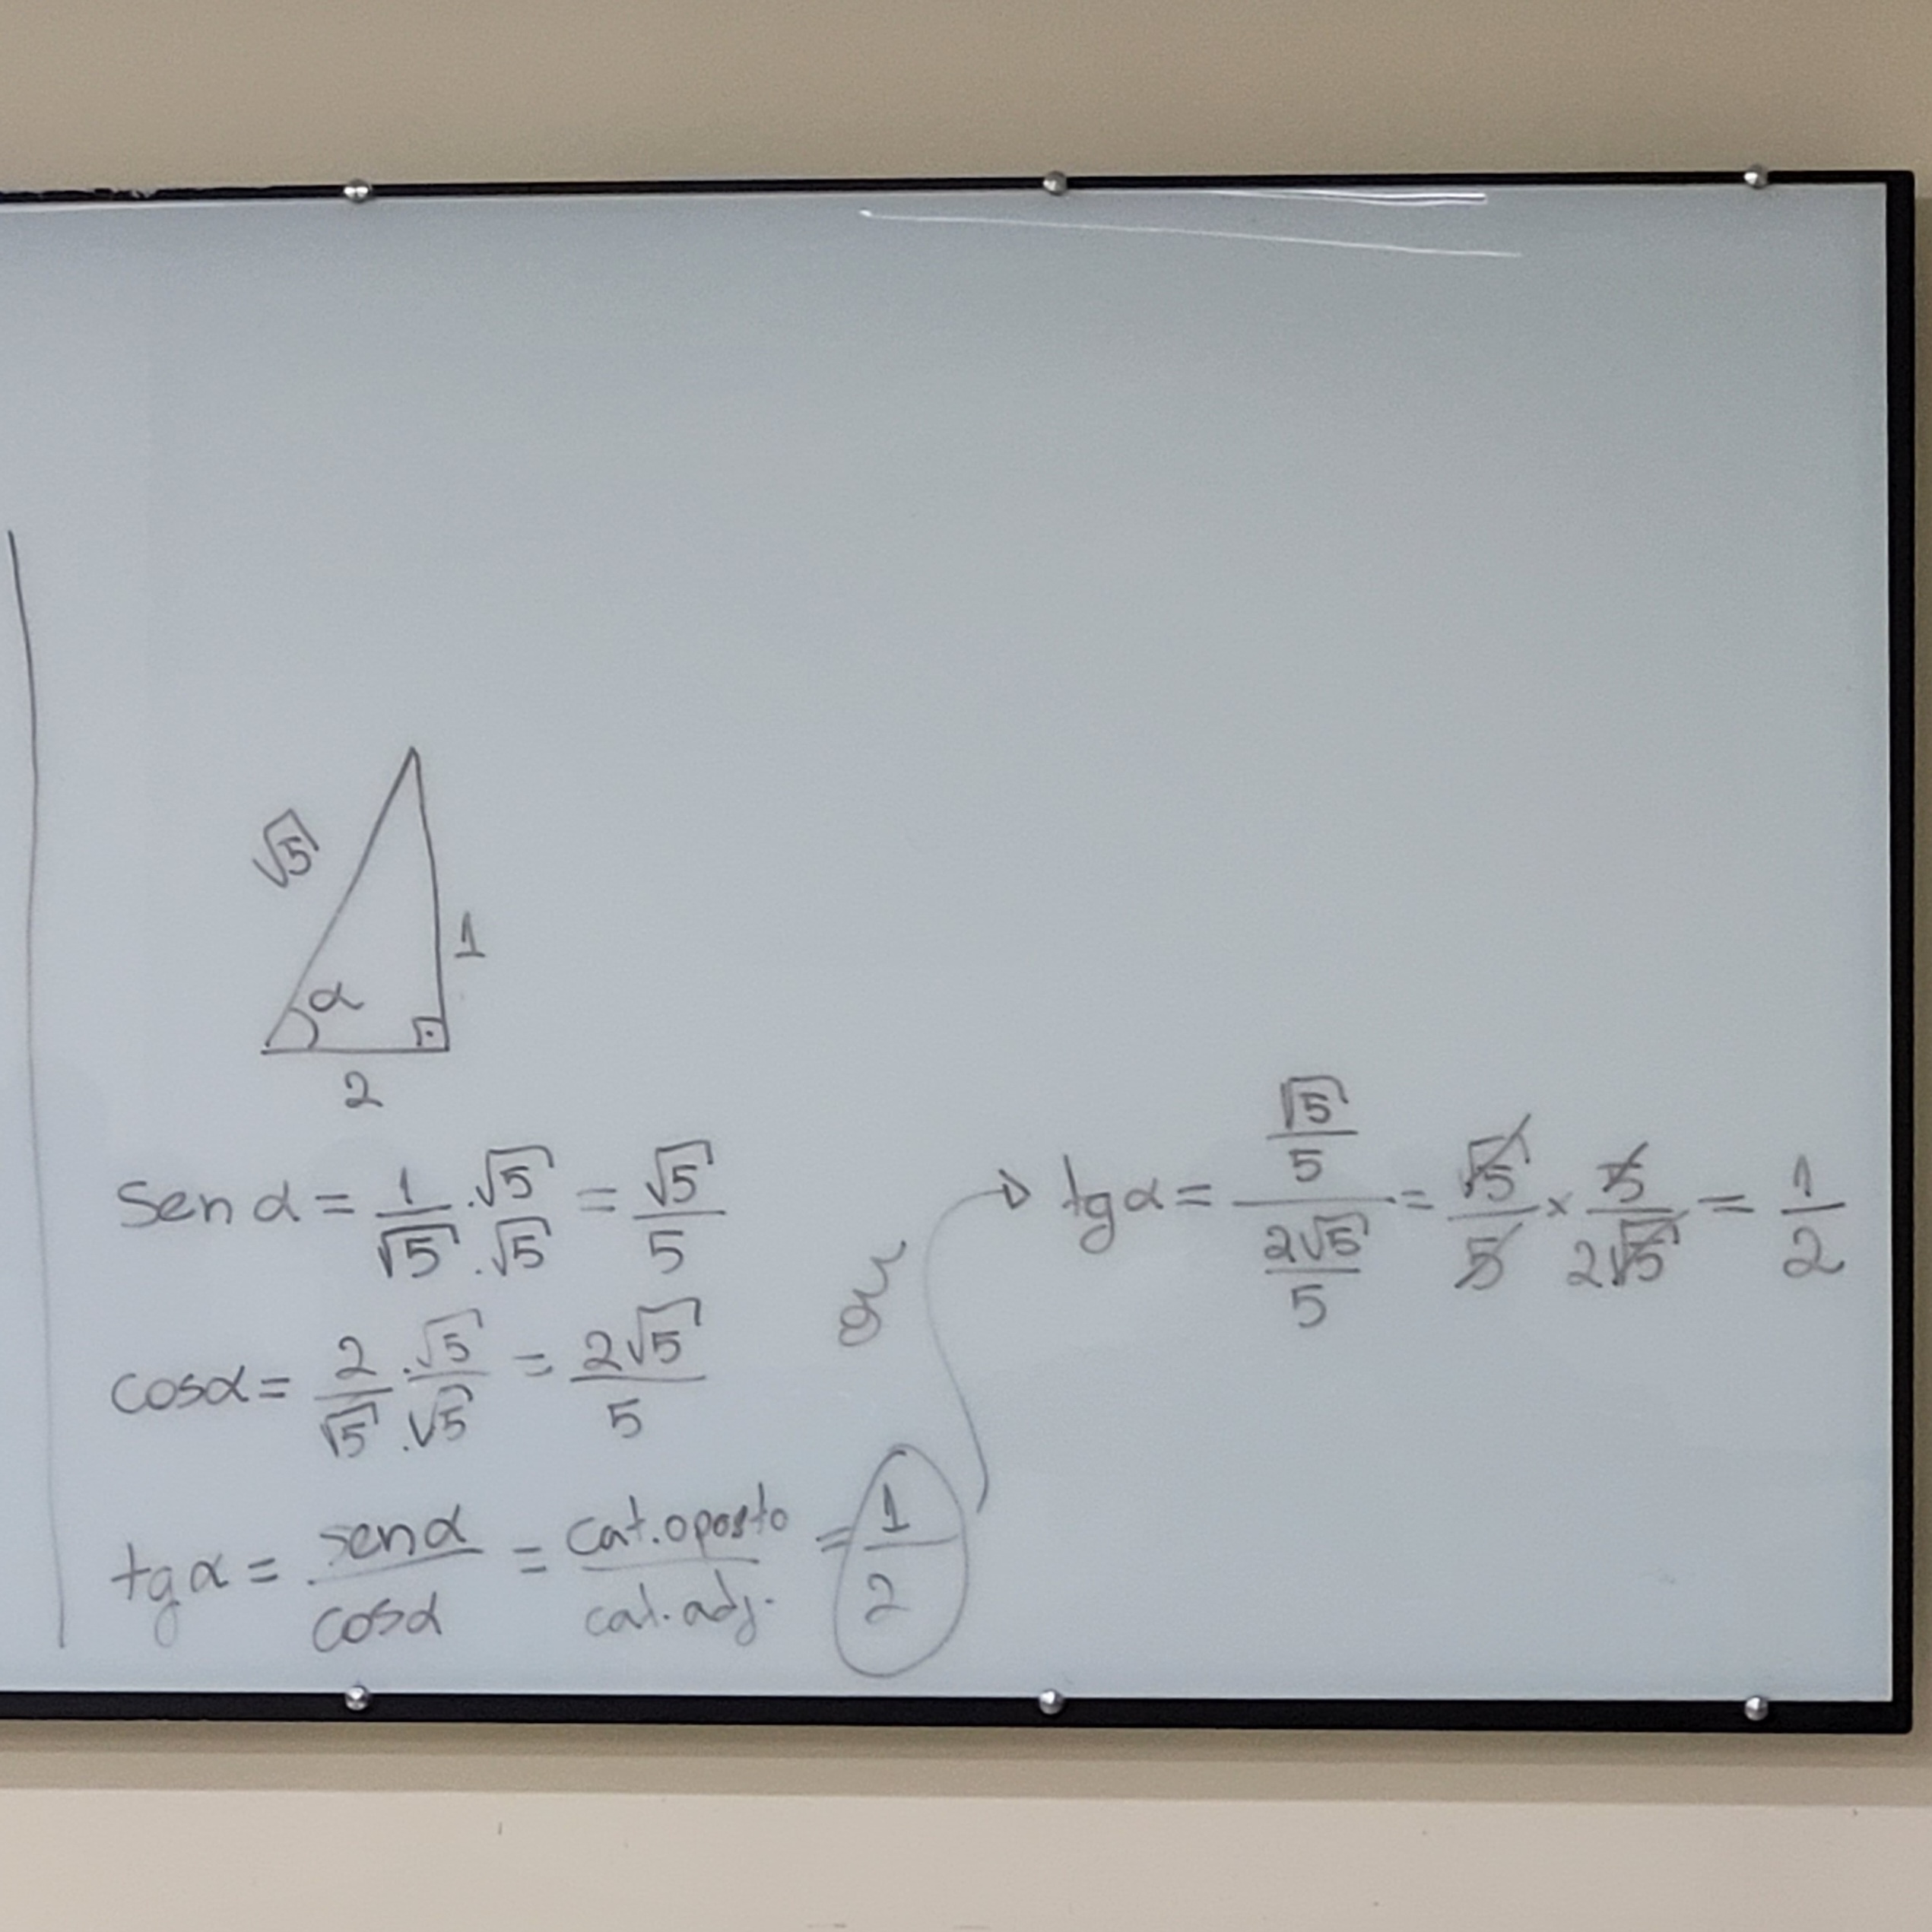 √5
1
α
2
sen α = 1/√5 · √5/√5 = √5/5
cosα = 2/√5 · √5/√5 = 2√5/5
tg α = senα/cosα = cat. oposto/cat. adj. = 1/2
ou
tg α = (√5/5)/(2√5/5) = √5/5 × 5/2√5 = 1/2